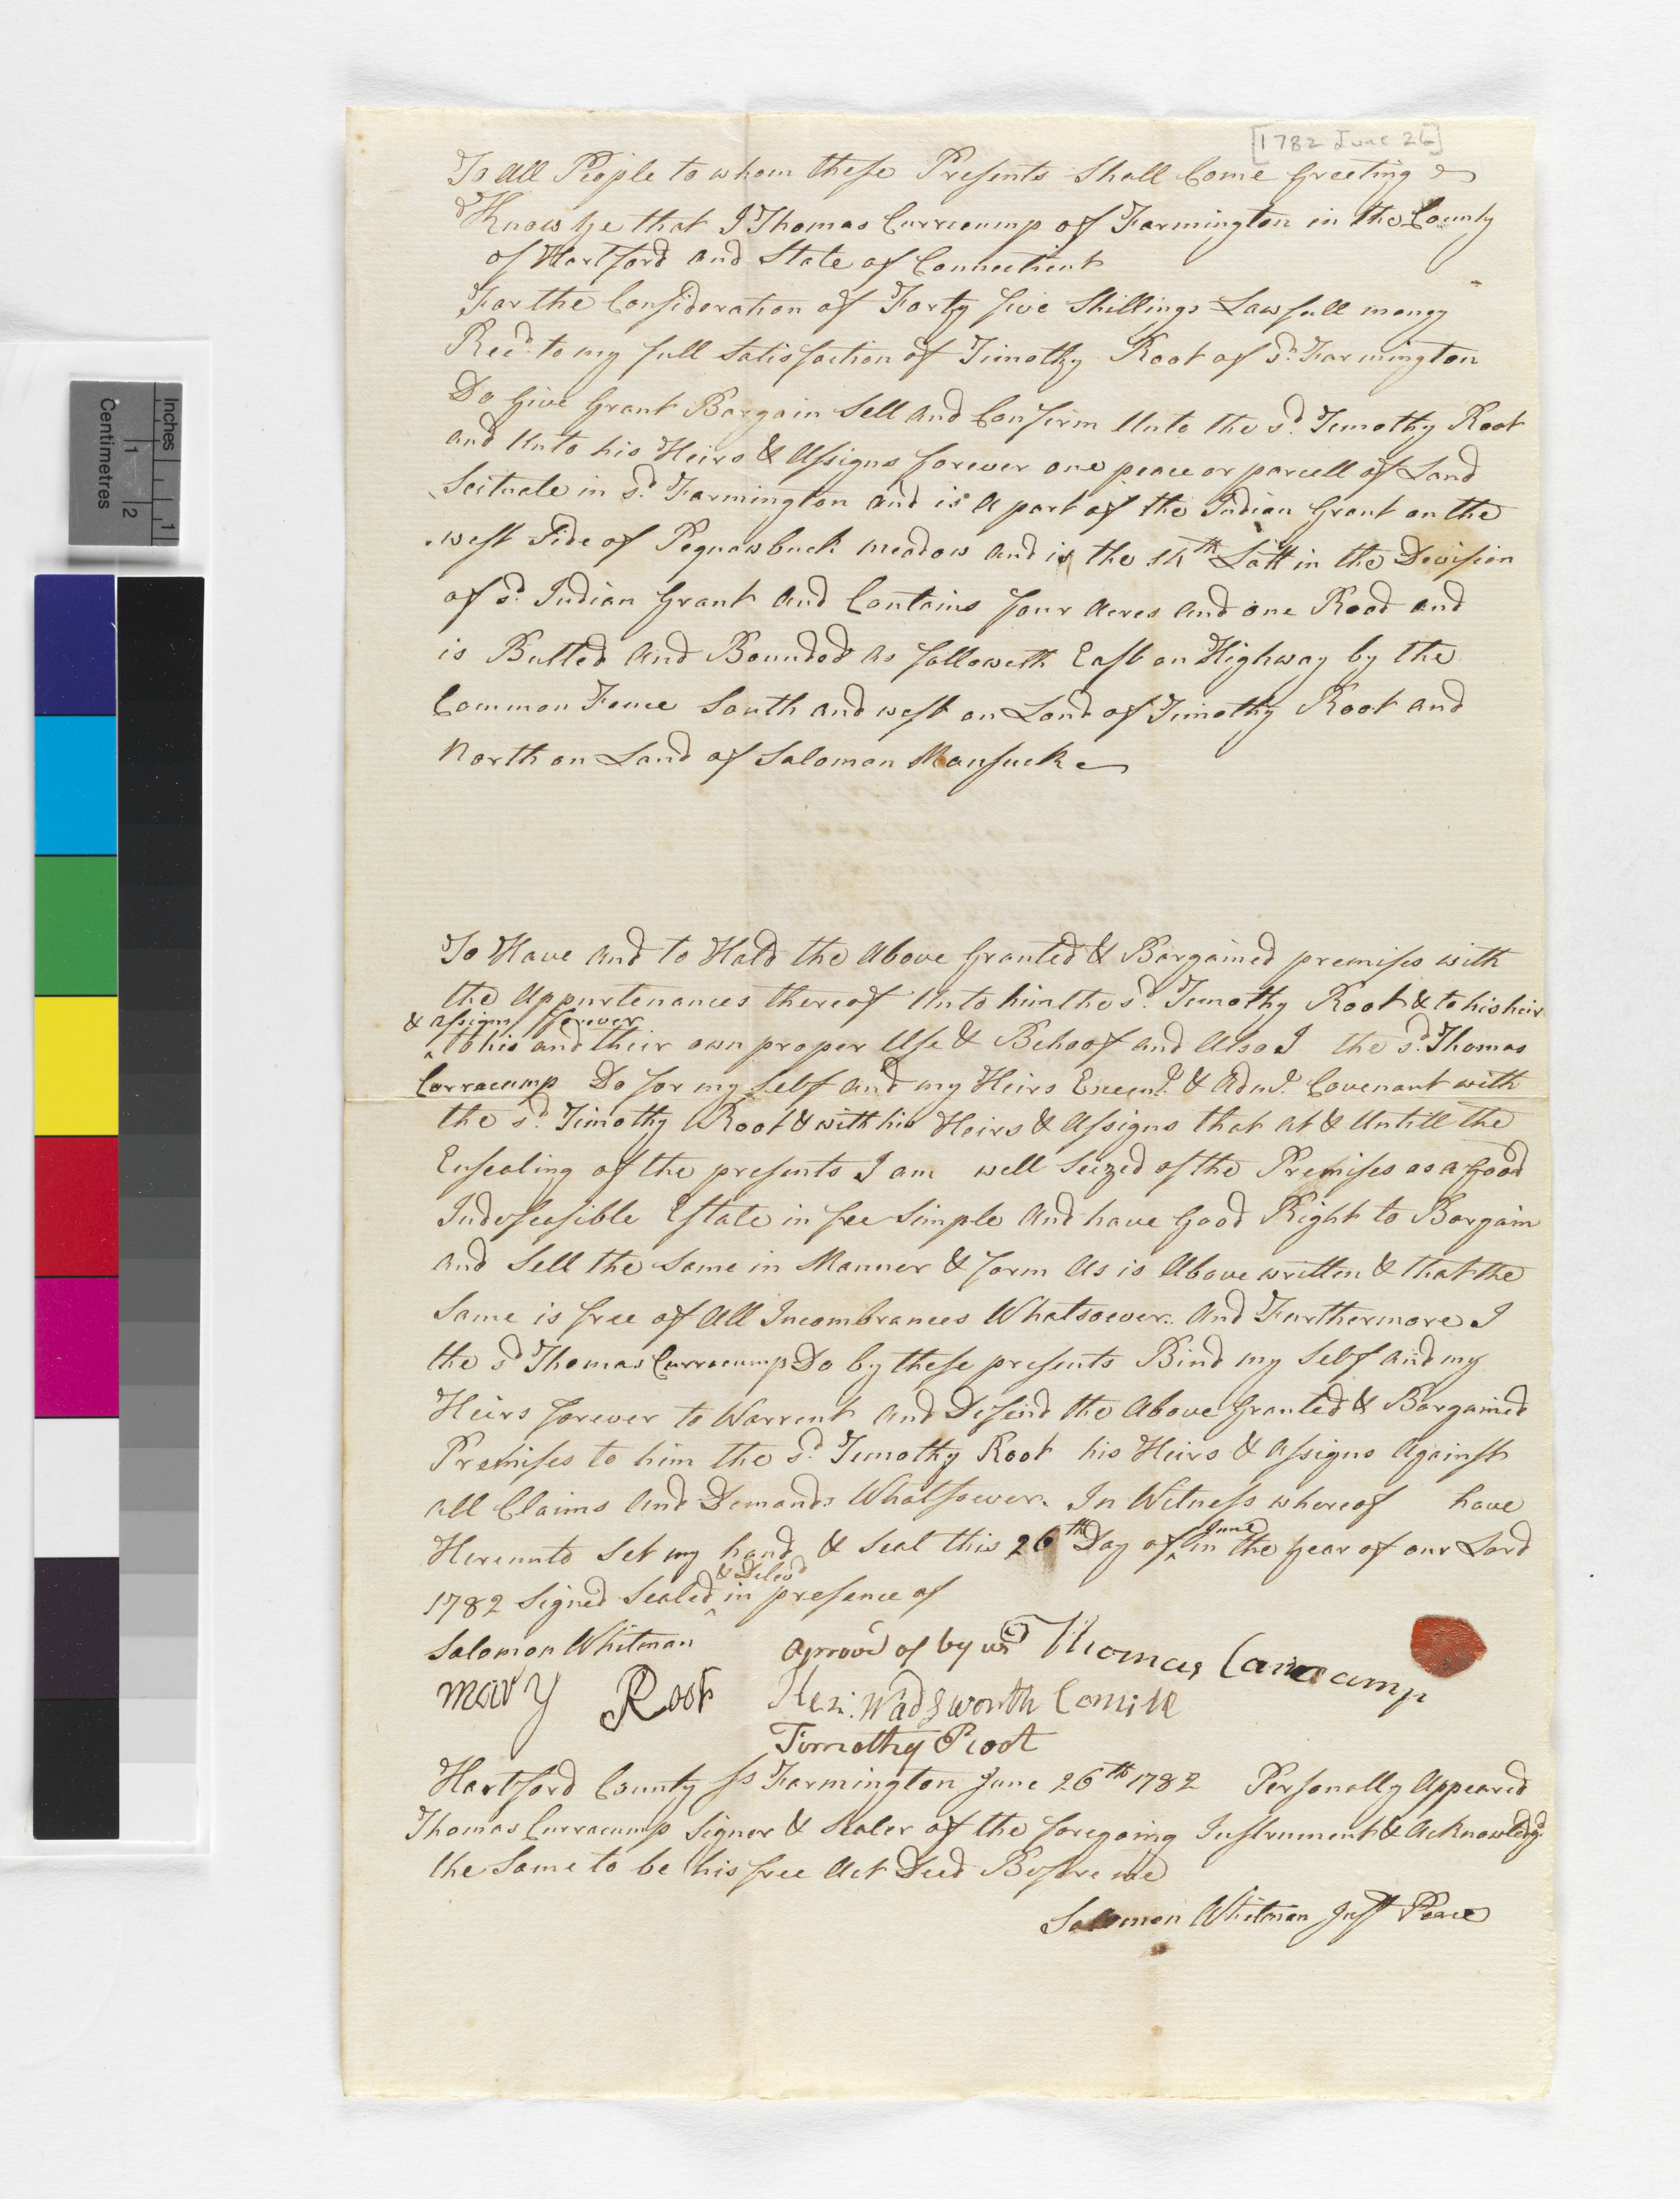 [1782 June 26]
To All People to whom these Presents Shall Come Greeting
Know ye that I Thomas Curricump of Farmington in the County
of Hartford and State of Connecticut
For the Consideration of Forty five Shillings Lawfull money
Recd. to my full Satisfaction of Timothy Root of sd. Farmington
Do Give Grant Bargain Sell and Confirm Unto the sd. Timothy Root
and Unto his Heirs & Assigns forever one peace or parcell of Land
Scituate in sd. Farmington and is a part of the Indian Grant on the
west Side of Pequawbuck meadow and is the 14th Lott in the Division
of sd. Indian Grant and Contains four Acres and one Rood and
is Butted and Bounded as followeth East on Highway by the
Common Fence South and west on Land of Timothy Root and
North on Land of Solomon Mansuck
To Have and to Hold the Above Granted & Bargained premises with
the Appurtenances thereof Unto him the sd. Timothy Root & to his heir
& assigns forever
to his and their own proper Use & Behoof and Also I the sd. Thomas
Curracump Do for my Self and my Heirs Execu. & Adm. Covenant with
the sd. Timothy Root & with his Heirs & Assigns that at & Untill the
Ensealing of the presents I am well Seized of the Premises as a Good
Indefeasible Estate in fee Simple and have Good Right to Bargain
and Sell the Same in Manner & form As is Above written & that the
Same is free of All Incombrances Whatsoever. And Furthermore I
the sd. Thomas Curracump Do by these presents Bind my Self and my
Heirs forever to Warrent and Defend the Above Granted & Bargained
Premises to him the sd. Timothy Root his Heirs & Assigns Against
all Claims and Demands Whatsoever. In Witness whereof have
Hereunto Set my hand & Seal this 26th Day of June in the year of our Lord
1782 Signed Sealed & Delevd in presence of
Solomon Whitman
Aprovd of by us
Thomas Curracamp
Mary Root
Hez: Wadsworth Comitt
Timothy Root
Hartford County ss Farmington June 26th 1782 Personally Appeared
Thomas Curracump Signer & Sealer of the foregoing Instrument & Acknowledgd.
the Same to be his free Act Deed Before me
Solomon Whitman Just Peace
Inches
1
Centimetres
1
2